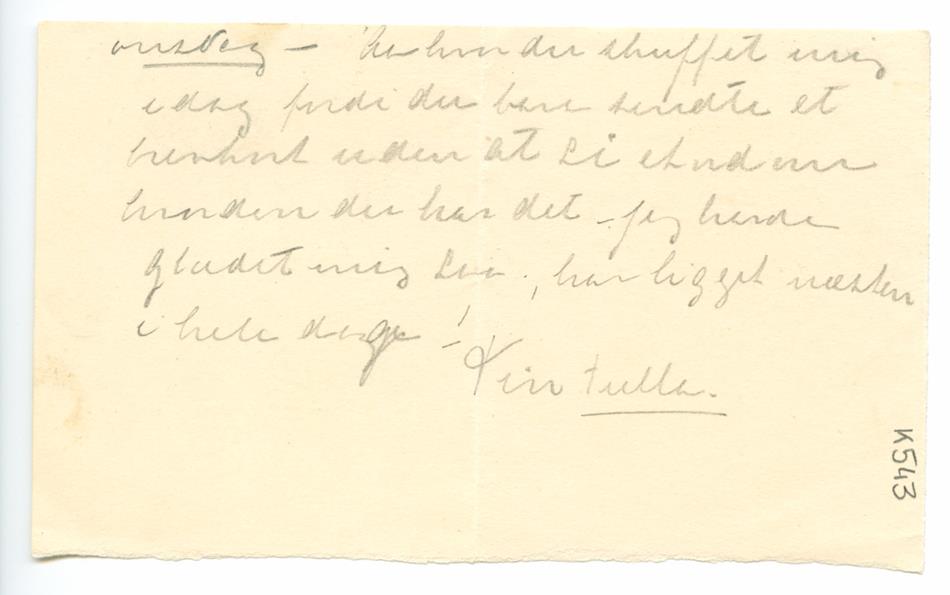 onsdag – har du skuffet mig
idag fordi du bare sendte et
brevkort uden at si et ord om
hvordan du har det – jeg havde
glædet mig saa, har ligget næsten
i hele dag !
Din Tulla.
K543